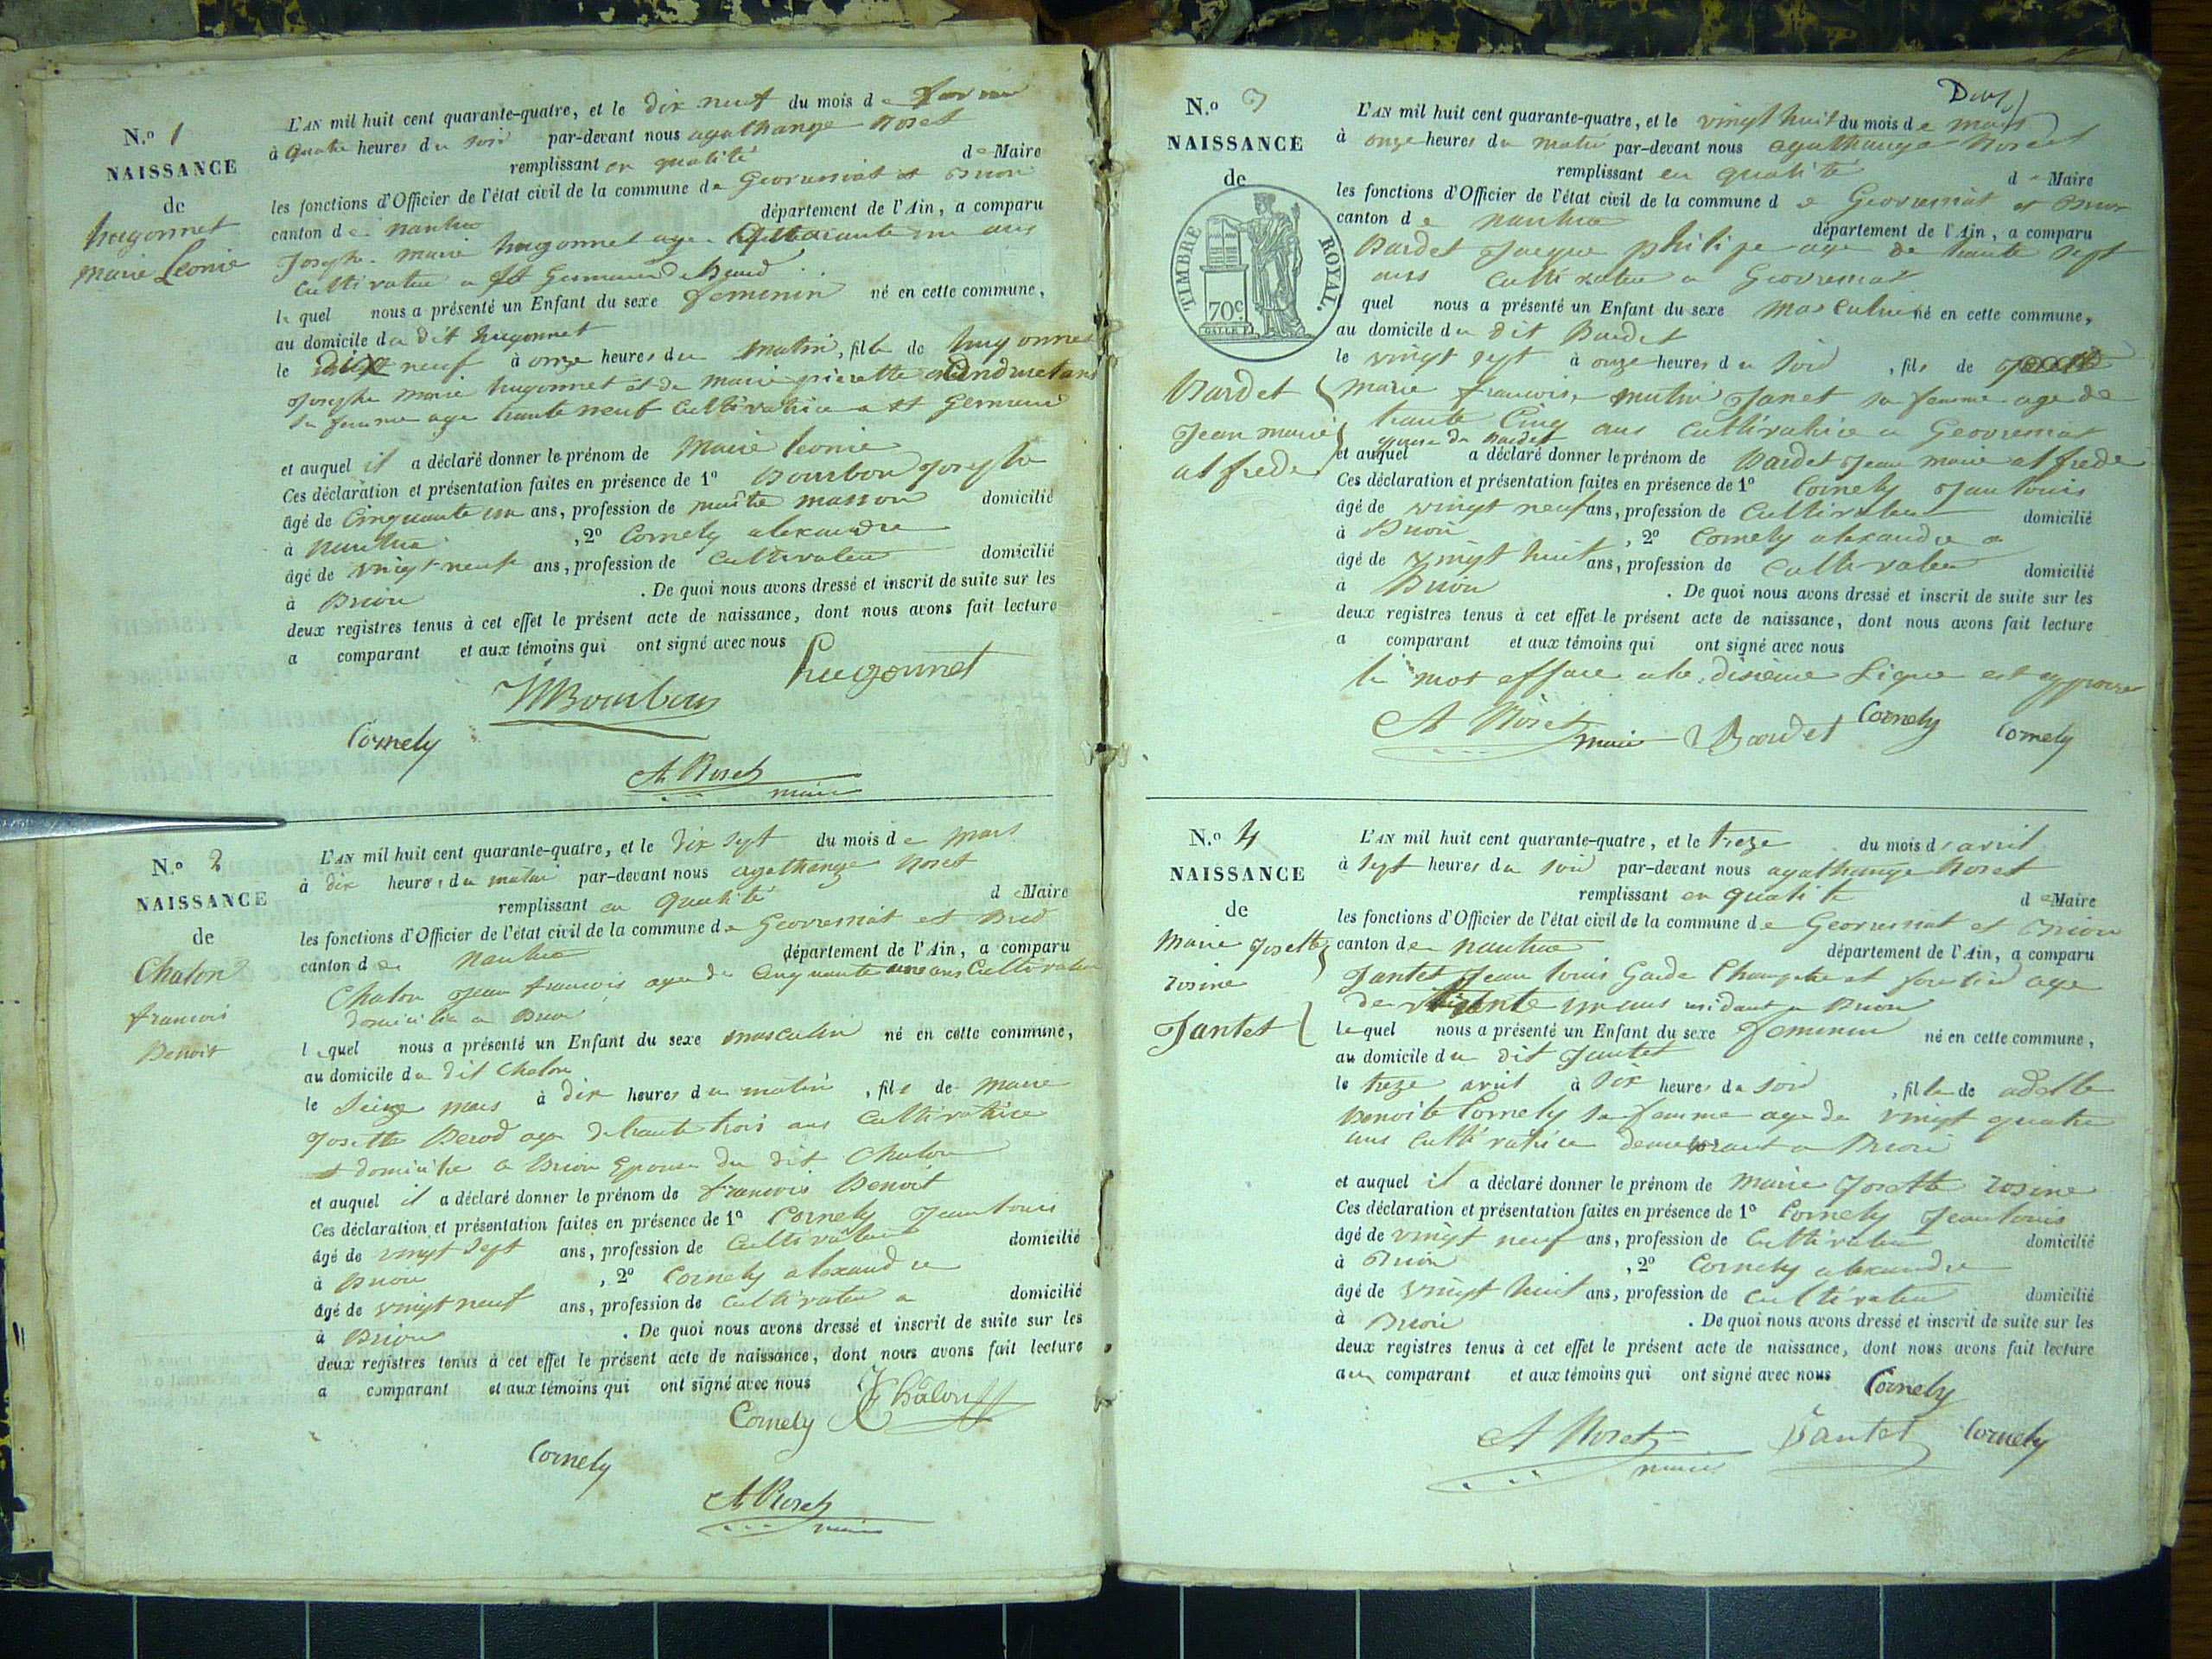 N.o 1
NAISSANCE
de
hugonnet
marie Leonie
L'AN mil huit cent quarante-quatre, et le dix neuf du mois de
à quatre heures du soir par-devant nous agathange Roset
remplissant en qualité de Maire
les fonctions d'Officier de l'état civil de la commune de Geovressiat et Brion
canton de nantua département de l'Ain, a comparu
Joseph marie hugonnet age un ans
cultivateur a st Germain de
lequel nous a présenté un Enfant du sexe feminin né en cette commune,
au domicile du dit hugonnet
le dix neuf à onze heures du matin, fille de hugonnet
Joseph marie hugonnet et de marie pierrette
sa femme age trante neuf cultivatrice a st Germain
et auquel il a déclaré donner le prénom de Marie leonie
Ces déclaration et présentation faites en présence de 1o Bourbon joseph
âgé de Cinquante un ans, profession de maître masson domicilié
à nantua , 2o Cornely alexandre
âgé de vingt neuf ans, profession de cultivateur domicilié
à Brion . De quoi nous avons dressé et inscrit de suite sur les
deux registres tenus à cet effet le présent acte de naissance, dont nous avons fait lecture
a comparant et aux témoins qui ont signé avec nous
hugonnet
Bourbon
Cornely
A Roset
maire
N.o 2
NAISSANCE
de
Chalon
francois
Benoit
L'AN mil huit cent quarante-quatre, et le dix sept du mois de mars
à dix heures du matin par-devant nous agathange Roset
remplissant en qualité de Maire
les fonctions d'Officier de l'état civil de la commune de Geovressiat et
canton de nantua département de l'Ain, a comparu
Chalon jean francois age de cinquante ans Cultivateur
domicilie a Brion
lequel nous a présenté un Enfant du sexe masculin né en cette commune,
au domicile du dit Chalon
le Seize mars à dix heures du matin , fils de marie
josette Berod age de trante trois ans cultivatrice
domicilie a Brion Epouse du dit Chalon
et auquel il a déclaré donner le prénom de francois Benoit
Ces déclaration et présentation faites en présence de 1o Cornely jean louis
âgé de vingt sept ans, profession de cultivateur domicilié
à Brion , 2o Cornely alexandre
âgé de vingt neuf ans, profession de cultivateur a domicilié
à Brion . De quoi nous avons dressé et inscrit de suite sur les
deux registres tenus à cet effet le présent acte de naissance, dont nous avons fait lecture
a comparant et aux témoins qui ont signé avec nous
Chalon
Cornely
Cornely
A Roset
maire
N.o 3
NAISSANCE
de
TIMBRE ROYAL.
70c
Bardet
jean marie
alfrede
L'AN mil huit cent quarante-quatre, et le vingt huit du mois de mars
à onze heures du matin par-devant nous agathange Roset
remplissant en qualité de Maire
les fonctions d'Officier de l'état civil de la commune de Geovressiat et Brion
canton de nantua département de l'Ain, a comparu
Bardet jacque philipe age de trante sept
ans cultivateur a Geovressiat
quel nous a présenté un Enfant du sexe masculin né en cette commune,
au domicile du dit Bardet
le vingt sept à onze heures du soir , fils de
marie francoise Janet sa femme age de
trante Cinq ans cultivatrice a Geovressiat
epouse du Bardet
et auquel a déclaré donner le prénom de Bardet jean marie alfrede
Ces déclaration et présentation faites en présence de 1o Cornely jean louis
âgé de vingt neuf ans, profession de Cultivateur domicilié
à Brion , 2o Cornely alexandre a
âgé de vingt huit ans, profession de cultivateur domicilié
à Brion . De quoi nous avons dressé et inscrit de suite sur les
deux registres tenus à cet effet le présent acte de naissance, dont nous avons fait lecture
a comparant et aux témoins qui ont signé avec nous
le mot efface a la disieme Ligne est approuver
A Roset maire Bardet Cornely Cornely
N.o 4
NAISSANCE
de
Marie josette
rosine
Jantet
L'AN mil huit cent quarante-quatre, et le treze du mois d avril
à sept heures du soir par-devant nous agathange Roset
remplissant en qualite de Maire
les fonctions d'Officier de l'état civil de la commune de Geovressiat et Brion
canton de nantua département de l'Ain, a comparu
Jantet jean louis Garde Champetre et forestier age
de un ans residant a Brion
lequel nous a présenté un Enfant du sexe feminin né en cette commune,
au domicile du dit Jantet
le treze avril à six heures du soir , fille de adelle
Benoite Cornely sa femme age de vingt quatre
ans cultivatrice demeurant a Brion
et auquel il a déclaré donner le prénom de Marie Josette rosine
Ces déclaration et présentation faites en présence de 1o Cornely jean louis
âgé de vingt neuf ans, profession de Cultivateur domicilié
à Brion , 2o Cornely alexandre
âgé de vingt huit ans, profession de cultivateur domicilié
à Brion . De quoi nous avons dressé et inscrit de suite sur les
deux registres tenus à cet effet le présent acte de naissance, dont nous avons fait lecture
au comparant et aux témoins qui ont signé avec nous
Cornely
A Roset maire Jantet Cornely